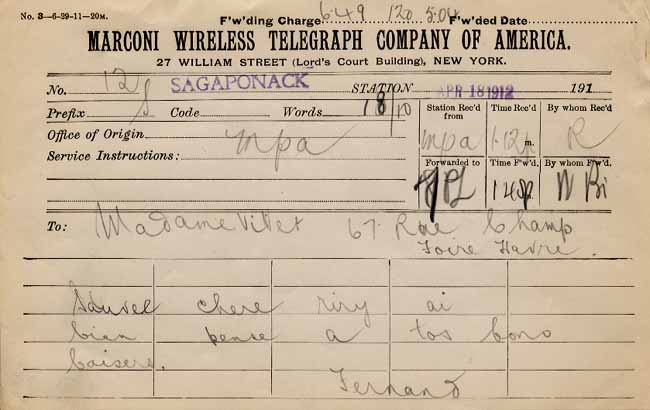 No. 3—6-29-11—20M. F'w'ding Charge 6.49 120 5.04 F'w'ded Date
MARCONI WIRELESS TELEGRAPH COMPANY OF AMERICA.
27 WILLIAM STREET (Lord's Court Building), NEW YORK.
No. 12 SAGAPONACK STATION APR 18 1912 191
Prefix S Code Words 18/10
Station Rec'd from Time Rec'd By whom Rec'd
Office of Origin mpa
mpa 1.12p m. R
Service Instructions:
Forwarded to Time F'w'd, By whom F'w'd,
1.48p
To: Madame Vilet 67 Rue Champ
Foire Havre.
Sauvee chere riry ai
bien pense a tos bons
baisers.
Fernand